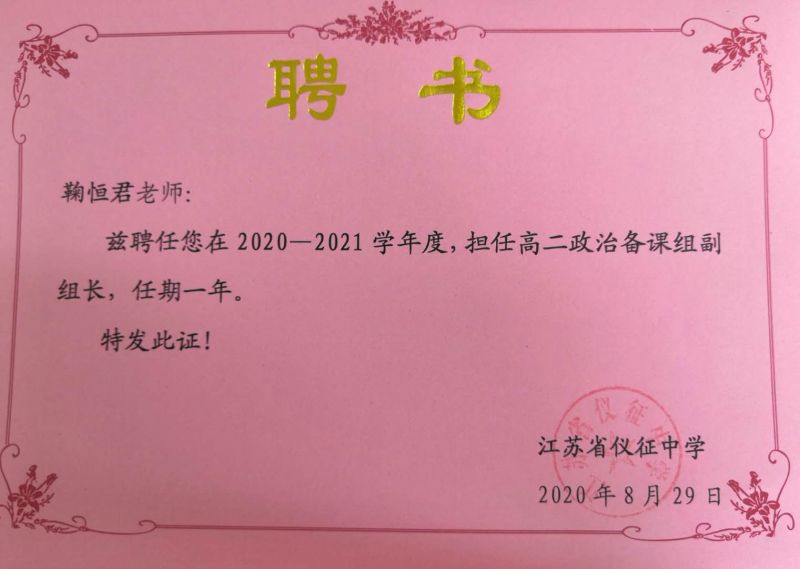 聘 书
鞠恒君老师:
兹聘任您在 2020—2021 学年度,担任高二政治备课组副
组长,任期一年。
特发此证!
江苏省仪征中学
2020 年 8 月 29 日
江苏省仪征中学